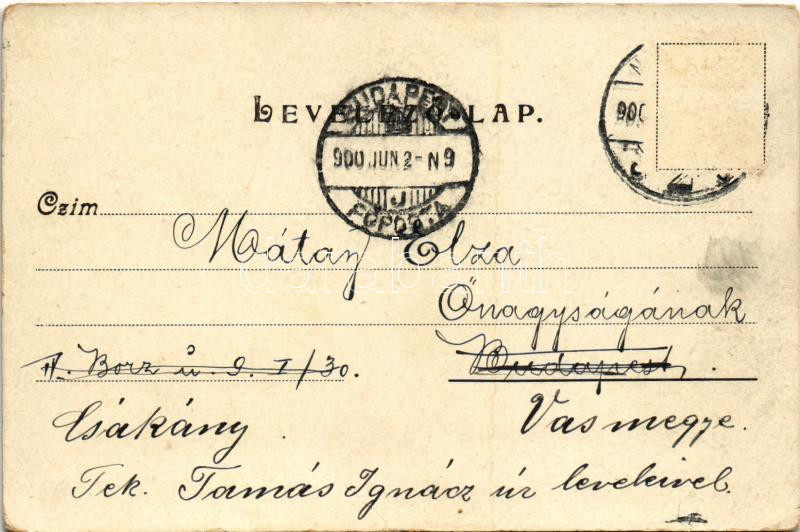 LEVELEZŐ-LAP.
BUDAPEST
900 JUN 2 - N 9
J
FŐPOSTA
900
Czim
Mátay Elza
Őnagyságának
IV. Borz u. 9. I/30.
Budapest.
Csákány.
Vasmegye.
Tek. Tamás Ignácz úr leveleivel.